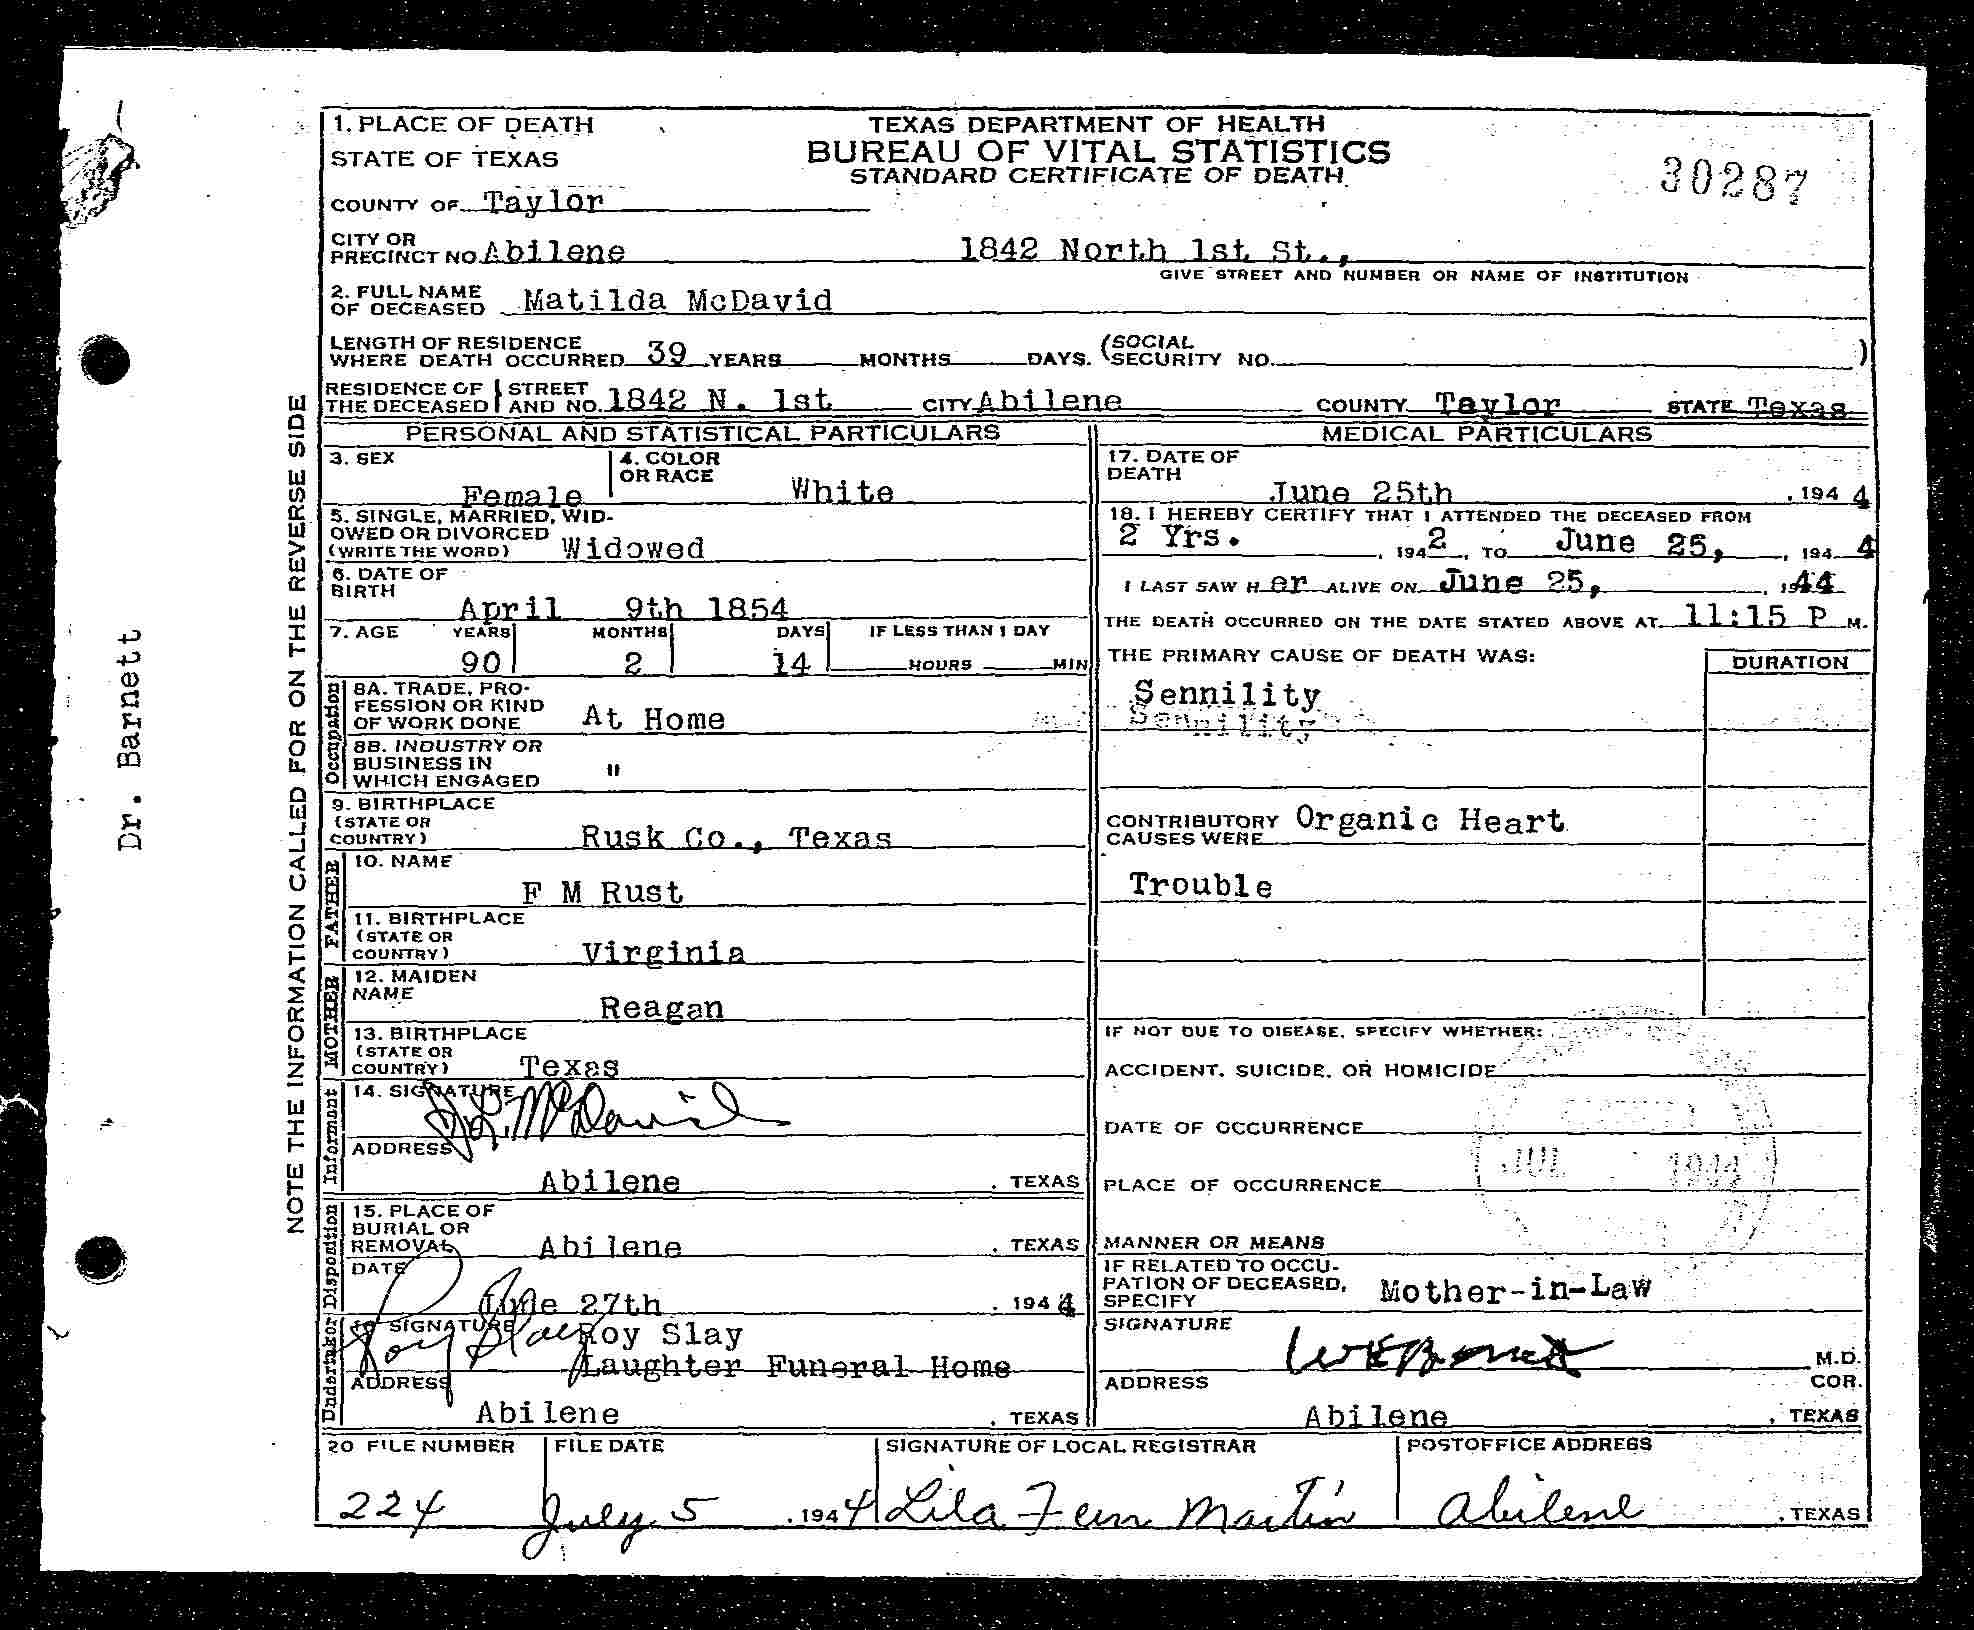 1. PLACE OF DEATH
TEXAS DEPARTMENT OF HEALTH
STATE OF TEXAS
BUREAU OF VITAL STATISTICS
STANDARD CERTIFICATE OF DEATH
30287
COUNTY OF Taylor
CITY OR
PRECINCT NO. Abilene 1842 North 1st St.,
GIVE STREET AND NUMBER OR NAME OF INSTITUTION
2. FULL NAME
OF DECEASED Matilda McDavid
LENGTH OF RESIDENCE
WHERE DEATH OCCURRED 39 YEARS MONTHS DAYS. (SOCIAL
SECURITY NO. )
RESIDENCE OF
THE DECEASED
STREET
AND NO. 1842 N. 1st CITY Abilene COUNTY Taylor STATE Texas
PERSONAL AND STATISTICAL PARTICULARS
3. SEX
Female
4. COLOR
OR RACE White
5. SINGLE, MARRIED, WID-
OWED OR DIVORCED
(WRITE THE WORD) Widowed
6. DATE OF
BIRTH
April 9th 1854
7. AGE YEARS MONTHS DAYS IF LESS THAN 1 DAY
90 2 14 HOURS MIN
Occupation
8A. TRADE, PRO-
FESSION OR KIND
OF WORK DONE At Home
8B. INDUSTRY OR
BUSINESS IN
WHICH ENGAGED "
9. BIRTHPLACE
(STATE OR
COUNTRY) Rusk Co., Texas
FATHER
10. NAME
F M Rust
11. BIRTHPLACE
(STATE OR
COUNTRY) Virginia
MOTHER
12. MAIDEN
NAME Reagan
13. BIRTHPLACE
(STATE OR
COUNTRY) Texas
Informant
14. SIGNATURE
McDavid
ADDRESS
Abilene , TEXAS
Disposition
15. PLACE OF
BURIAL OR
REMOVAL Abilene , TEXAS
DATE
June 27th , 1944
Undertaker
16 SIGNATURE Roy Slay
Roy Slay
Laughter Funeral Home
ADDRESS
Abilene , TEXAS
MEDICAL PARTICULARS
17. DATE OF
DEATH
June 25th , 1944
18. I HEREBY CERTIFY THAT I ATTENDED THE DECEASED FROM
2 Yrs. , 1942 , TO June 25, , 1944
I LAST SAW H er ALIVE ON June 25, , 1944
THE DEATH OCCURRED ON THE DATE STATED ABOVE AT 11:15 P M.
THE PRIMARY CAUSE OF DEATH WAS: DURATION
Sennility
Sennility
CONTRIBUTORY
CAUSES WERE Organic Heart
Trouble
IF NOT DUE TO DISEASE, SPECIFY WHETHER:
ACCIDENT, SUICIDE, OR HOMICIDE
DATE OF OCCURRENCE
JUL 1944
PLACE OF OCCURRENCE
MANNER OR MEANS
IF RELATED TO OCCU-
PATION OF DECEASED,
SPECIFY Mother-in-Law
SIGNATURE
M.D.
ADDRESS COR.
Abilene , TEXAS
20 FILE NUMBER FILE DATE SIGNATURE OF LOCAL REGISTRAR POSTOFFICE ADDRESS
224 July 5 , 1944 Lila Fern Martin Abilene , TEXAS
NOTE THE INFORMATION CALLED FOR ON THE REVERSE SIDE
Dr. Barnett